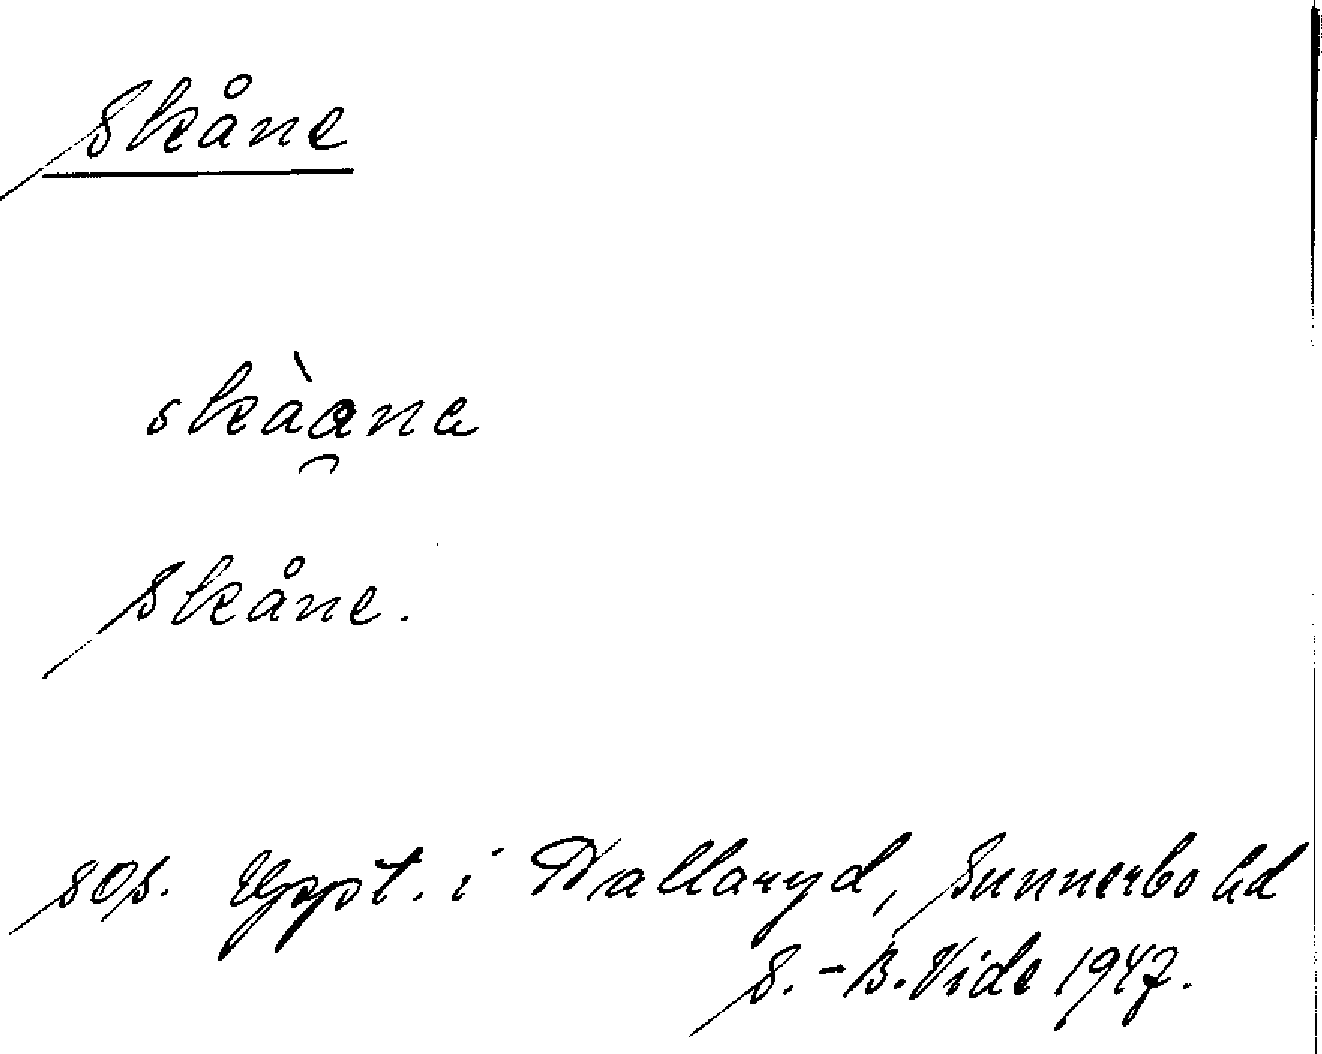 Skåne
skàana
Skåne.
SOS. Uppt. i Hallaryd, Sunnerbo hd
S.-B. Vide 1947.